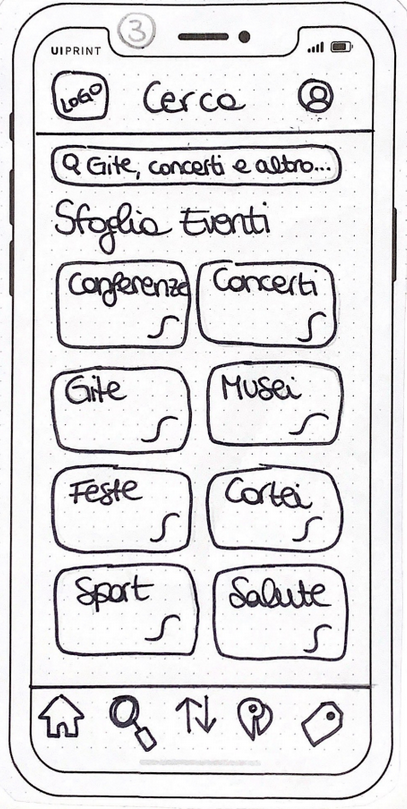 3
UIPRINT
LOGO Cerca
Gite, concerti e altro...
Sfoglia Eventi
Conferenze Concerti
Gite Musei
Feste Cortei
Sport Salute